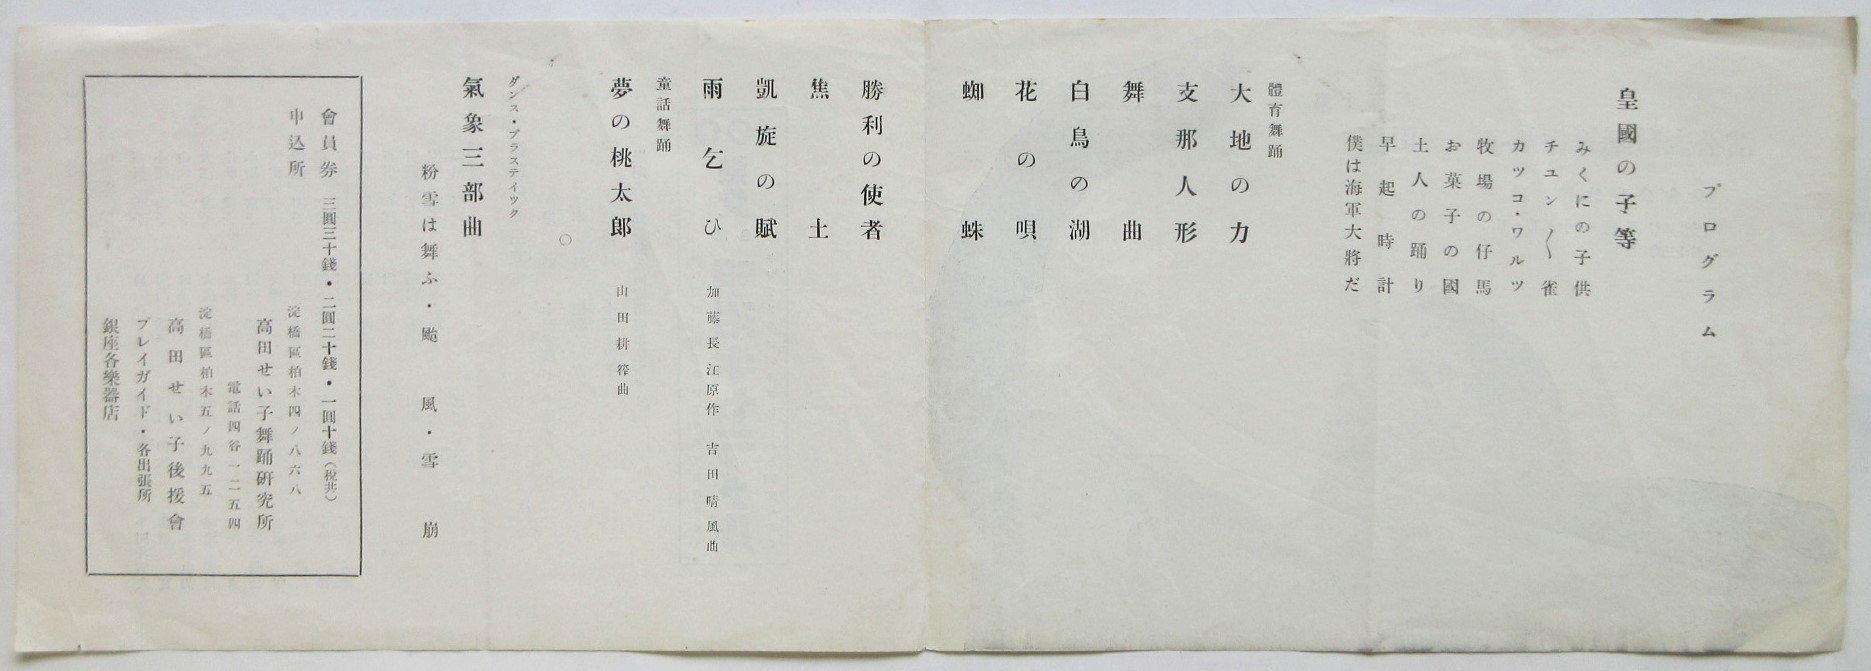 プログラム
皇國の子等
みくにの子供
チユン〱雀
カツコ・ワルツ
牧場の仔馬
お菓子の國
土人の踊り
早起時計
僕は海軍大將だ
體育舞踊
大地の力
支那人形
舞曲
白鳥の湖
花の唄
蜘蛛
勝利の使者
焦土
凱旋の賦
雨乞ひ 加藤長江原作 吉田晴風曲
童話舞踊
夢の桃太郎 山田耕筰曲
○
ダンス・プラステイツク
氣象三部曲
粉雪は舞ふ・颱風・雪崩
會員券 三圓三十錢・二圓二十錢・一圓十錢(税共)
申込所
淀橋區柏木四ノ八六八
高田せい子舞踊研究所
電話四谷一二五四
淀橋區柏木五ノ九九五
高田せい子後援會
プレイガイド・各出張所
銀座各樂器店